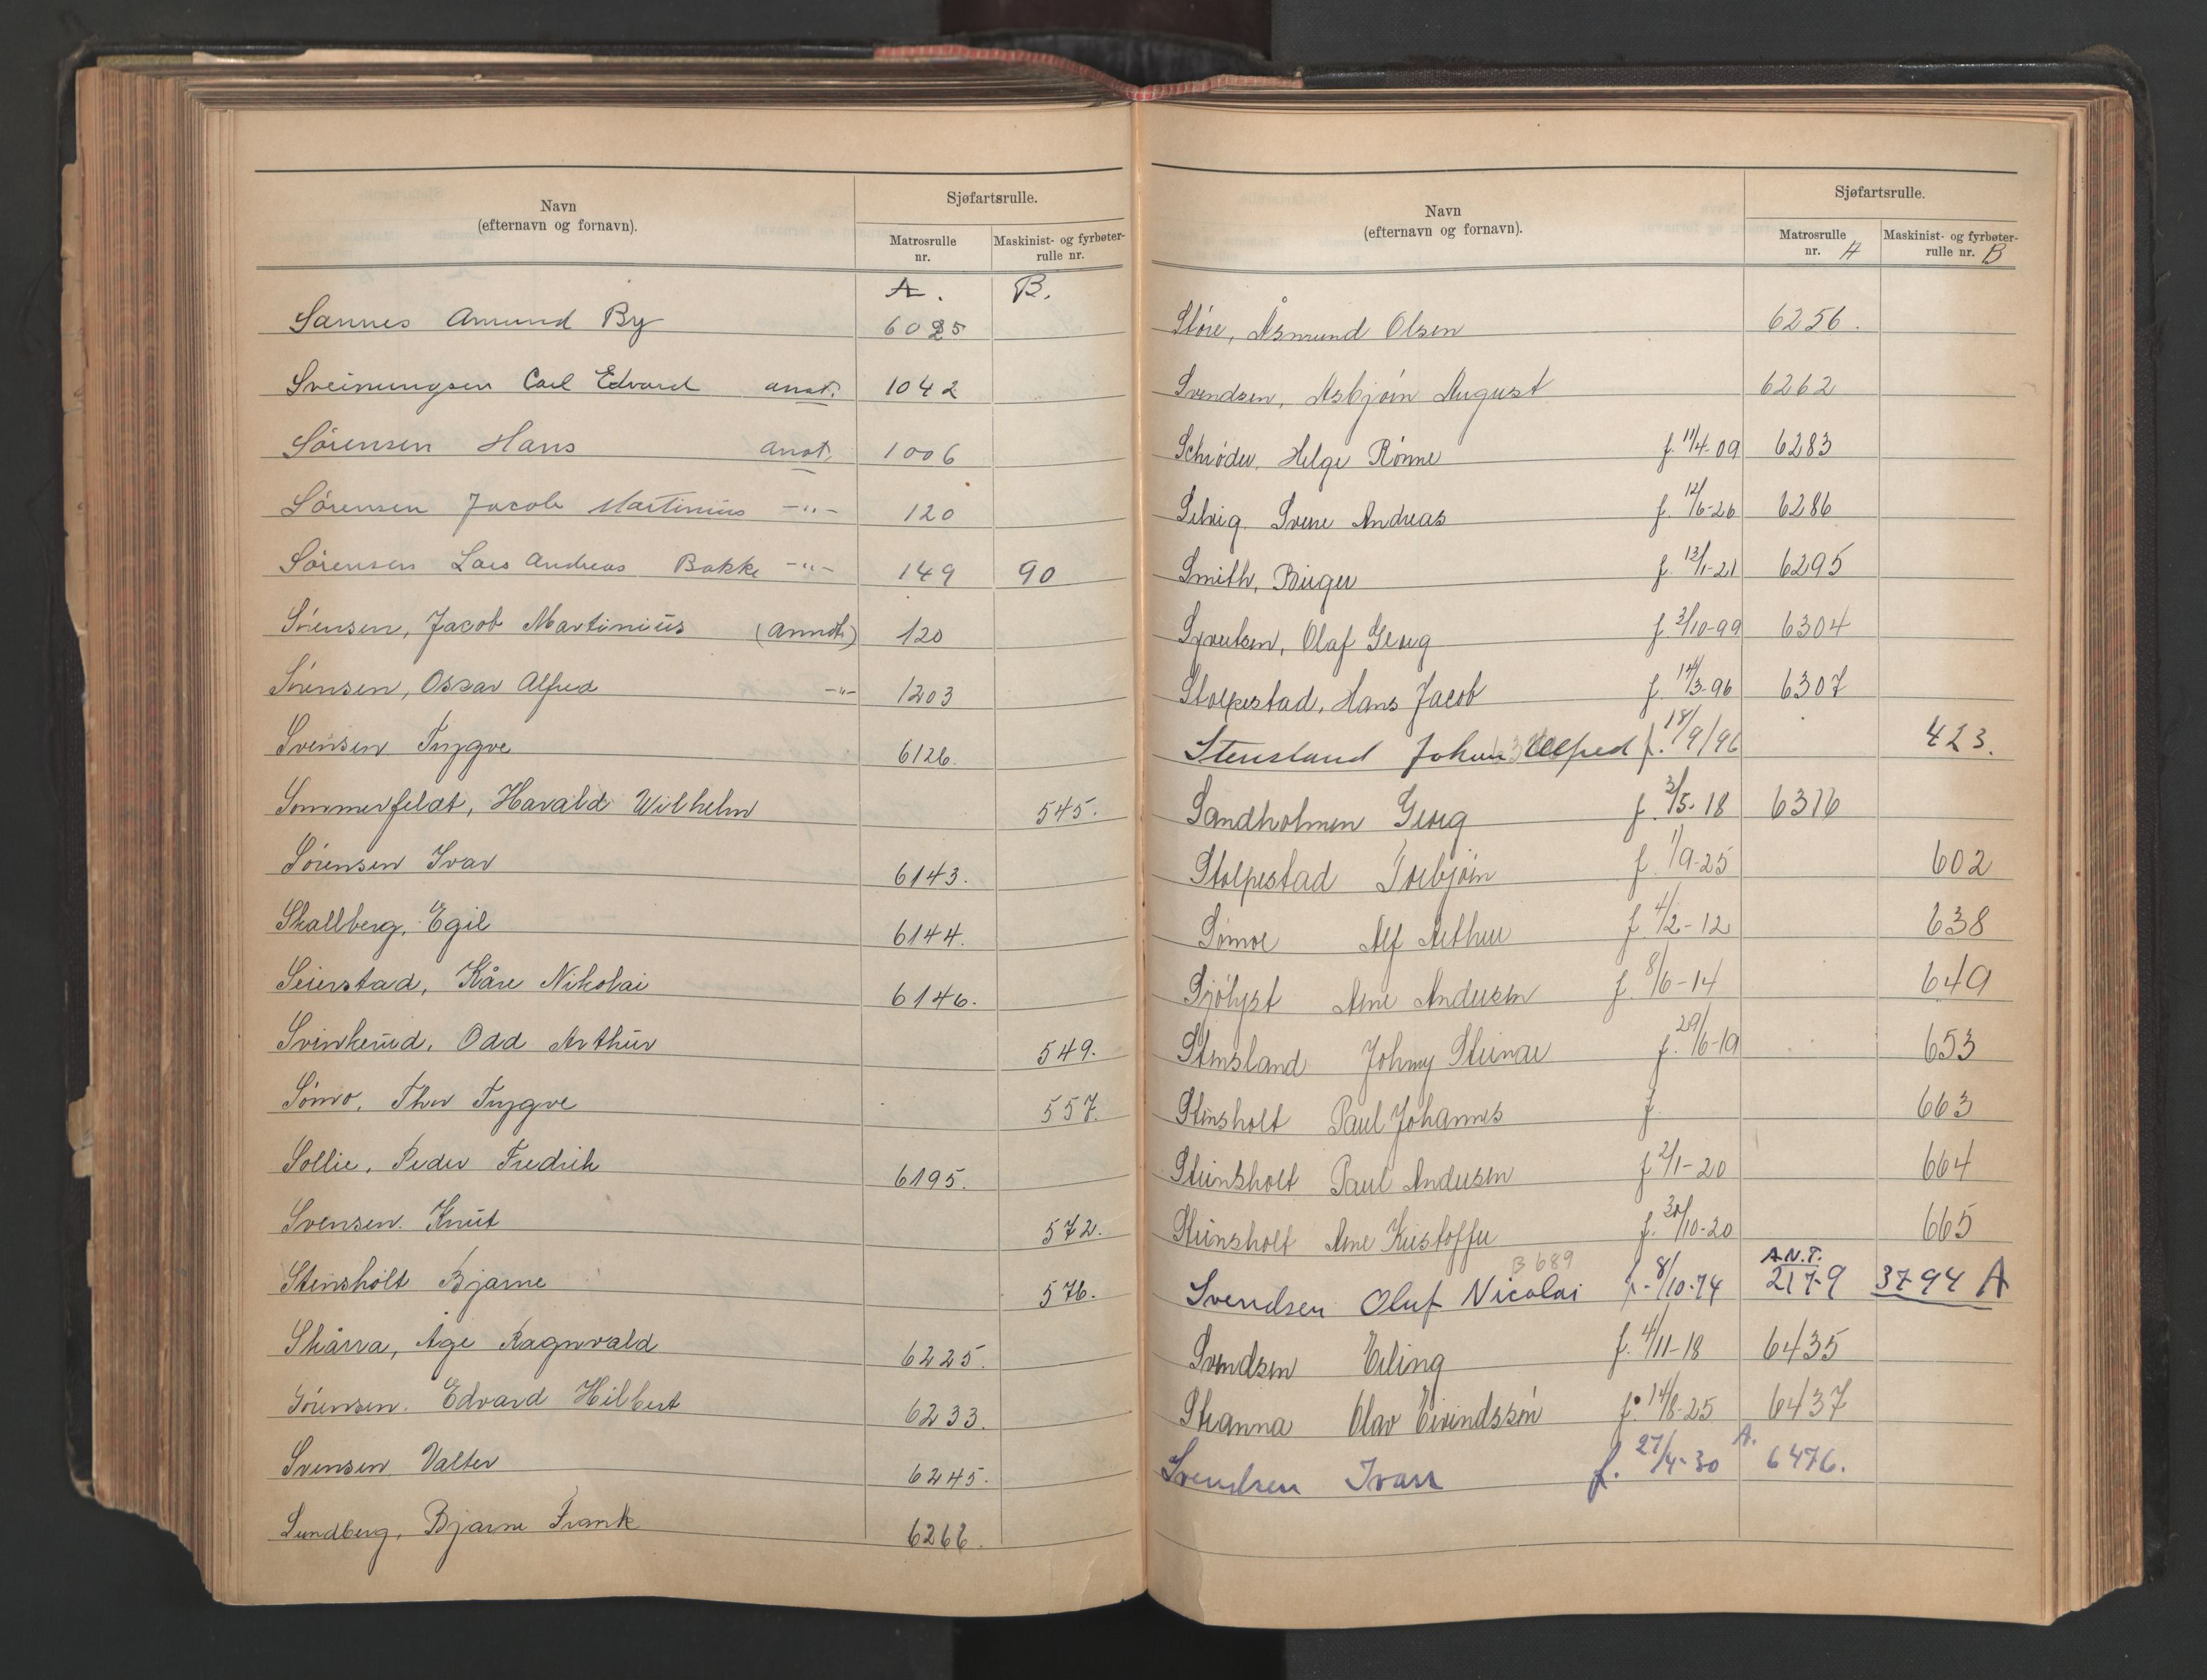 Navn
(efternavn og fornavn).
Sjøfartsrulle.
Matrosrulle nr.
Maskinist- og fyrbøter- rulle nr.
A. B.
Sannes Amund By 6025
Sveinungsen Carl Edvard anot. 1042
Sørensen Hans anot. 1006
Sørensen Jacob Martinius -"- 120
Sørensen Lars Andreas Bakke -"- 149 90
Sørensen, Jacob Martinius (annot.) 120
Sørensen, Oscar Alfred -"- 1203
Svensen Trygve 6126.
Sommerfeldt, Harald Wilhelm 545.
Sørensen Ivar 6143.
Skallberg, Egil 6144.
Seierstad, Kåre Nikolai 6146.
Svinkeud, Odd Arthur 549.
Sømo, Thor Trygve 557.
Sollie, Peder Fredrik 6195.
Svensen. Knut 572.
Stensholt Bjarne 576.
Skårra, Åge Ragnvald 6225.
Sørensen. Edvard Hilbert 6233.
Svensen Valter 6245.
Sundberg, Bjarne Frank 6266.
Navn
(efternavn og fornavn).
Sjøfartsrulle.
Matrosrulle nr. A
Maskinist- og fyrbøter- rulle nr. B
Støre, Åsmund Olsen 6256.
Svendsen, Asbjørn August 6262
Schrøder, Helge Rønne f. 11/4-09 6283
Selvig. Sverre Andreas f. 12/6-26 6286
Smith, Birger f. 13/1-21 6295
Syvertsen, Olaf Georg f. 2/10-99 6304
Stolpestad, Hans Jacob f. 14/3-96 6307
Stensland Johan Alfred f. 18/9/96 423.
Sandholmen Georg f. 3/5-18 6316
Stolpestad Torbjørn f. 1/9-25 602
Sømoe Alf Arthur f. 4/2-12 638
Sjølyst Arne Andersen f. 8/6-14 649
Stensland Johnny Steinar f. 29/6-19 653
Stensholt Paul Johannes f. 663
Steinsholt Paul Andersen f 2/1-20 664
Steinsholt Arne Kristoffer f. 30/10-20 665
B 689
Svendsen Oluf Nicolai f. 8/10-74 A.N.T. 2179 3794 A
Svendsen Erling f. 4/11-18 6435
Skanna Olav Eivindssøn f. 14/8-25 6437
Svendsen Ivar f. 27/4-30 A. 6476.